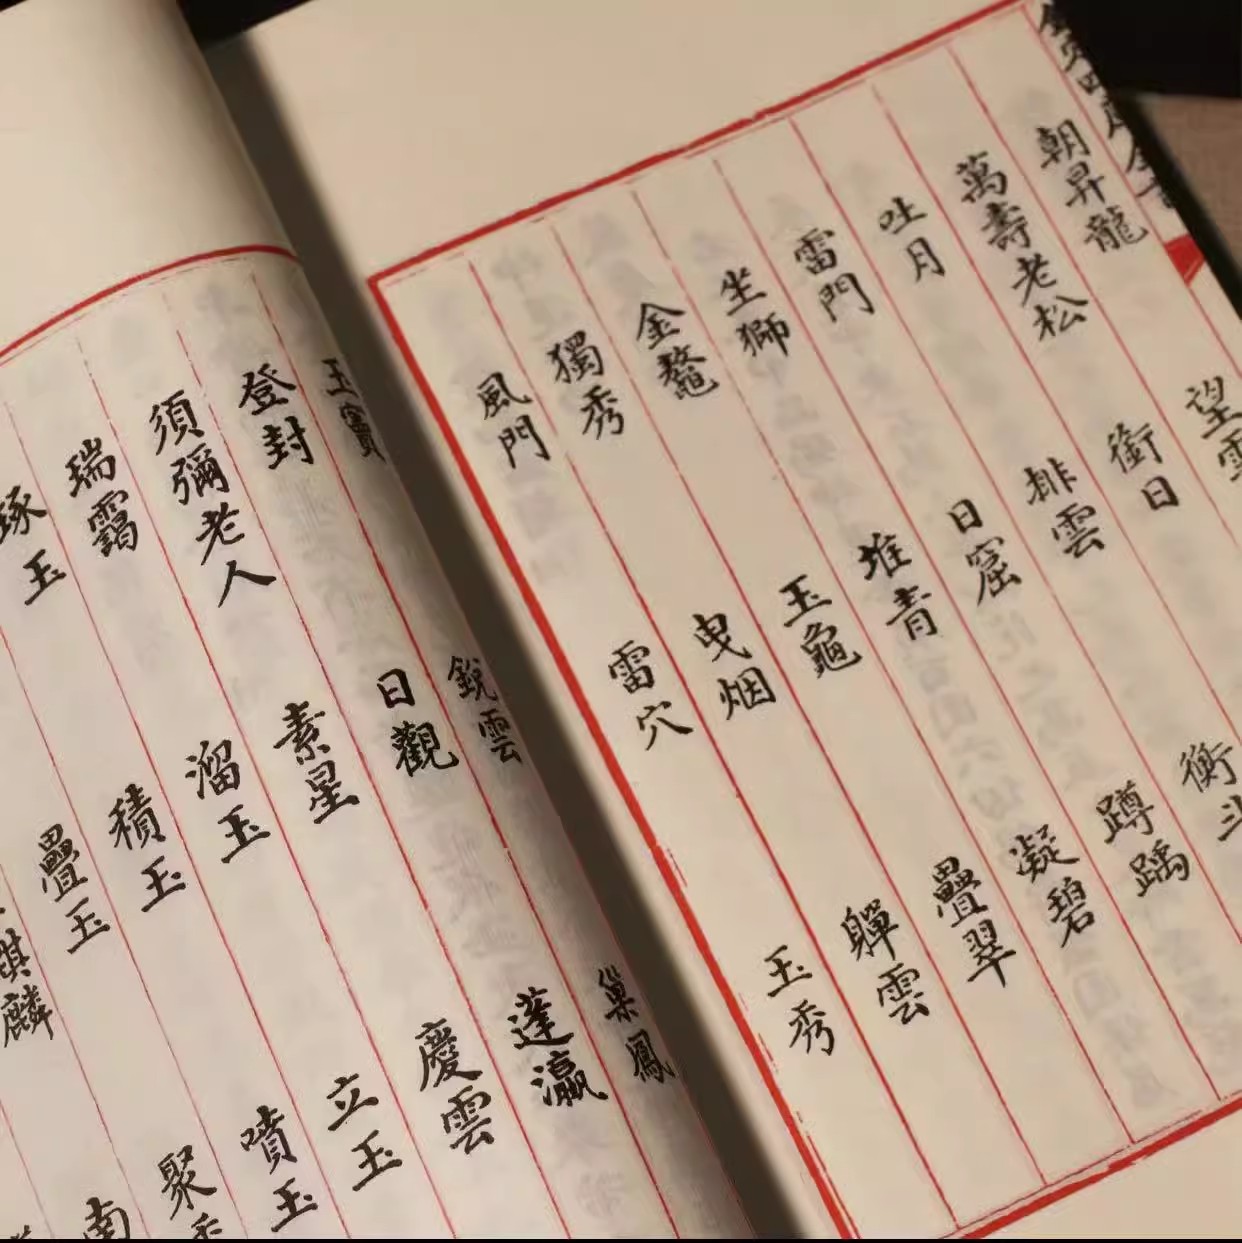 朝昇龍 望
萬壽老松 銜日
吐月 排雲 衡斗
雷門 日窟 蹲踽
坐獅 堆青 凝碧
金鰲 玉龜 疊翠
獨秀 曳烟 嚲雲
風門 雷穴 玉秀
玉竇 銳雲 巢鳳
登封 日觀 蓬瀛
須彌老人 素星 慶雲
瑞靄 溜玉 立玉
琢玉 積玉 噴玉
疊玉 聚
麒麟 南